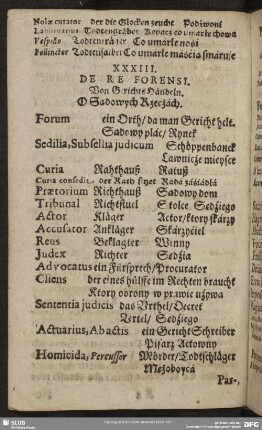 Nolæ curator der die Glocken zeucht Podzwoni
Vespillo Todtentråger Co umarłe nośi
Pollinctor Todtensalber Co umarłe maśćia smaruie
XXXIII.
DE RE FORENSI.
Von Gerichts Håndeln.
O Sadowych Rzeczách.
Forum ein Orth/ da man Gericht helt.
Sadowy plác/ Rynek
Sedilia, Subsellia judicum Schöppenbanck
Lawnicze mieysce
Curia Rahthauß Ratuß
Curia consedit der Rath sitzet Rada záśiádłá
Prætorium Richthauß Sadowy dom
Tribunal Richtstuel Stolec Sedźiego
Actor Kläger Actor/ ktory skárży
Accusator Ankläger Skárżyćiel
Reus Beklagter Winny
Judex Richter Sedźia
Advocatus ein Fürsprech/ Procurator
Cliens der eines hülffe im Rechten braucht
Ktory obrony w prawie używa
Sententia judicis das Urthel/ Decret
Urtel/ Sedźiego
Actuarius, Ab actis ein Gericht Schreiber
Pisarz Actowny
Homicida, Percussor Mörder/ Todtschläger
Mężoboycá
Par-,
SLUB
DFG